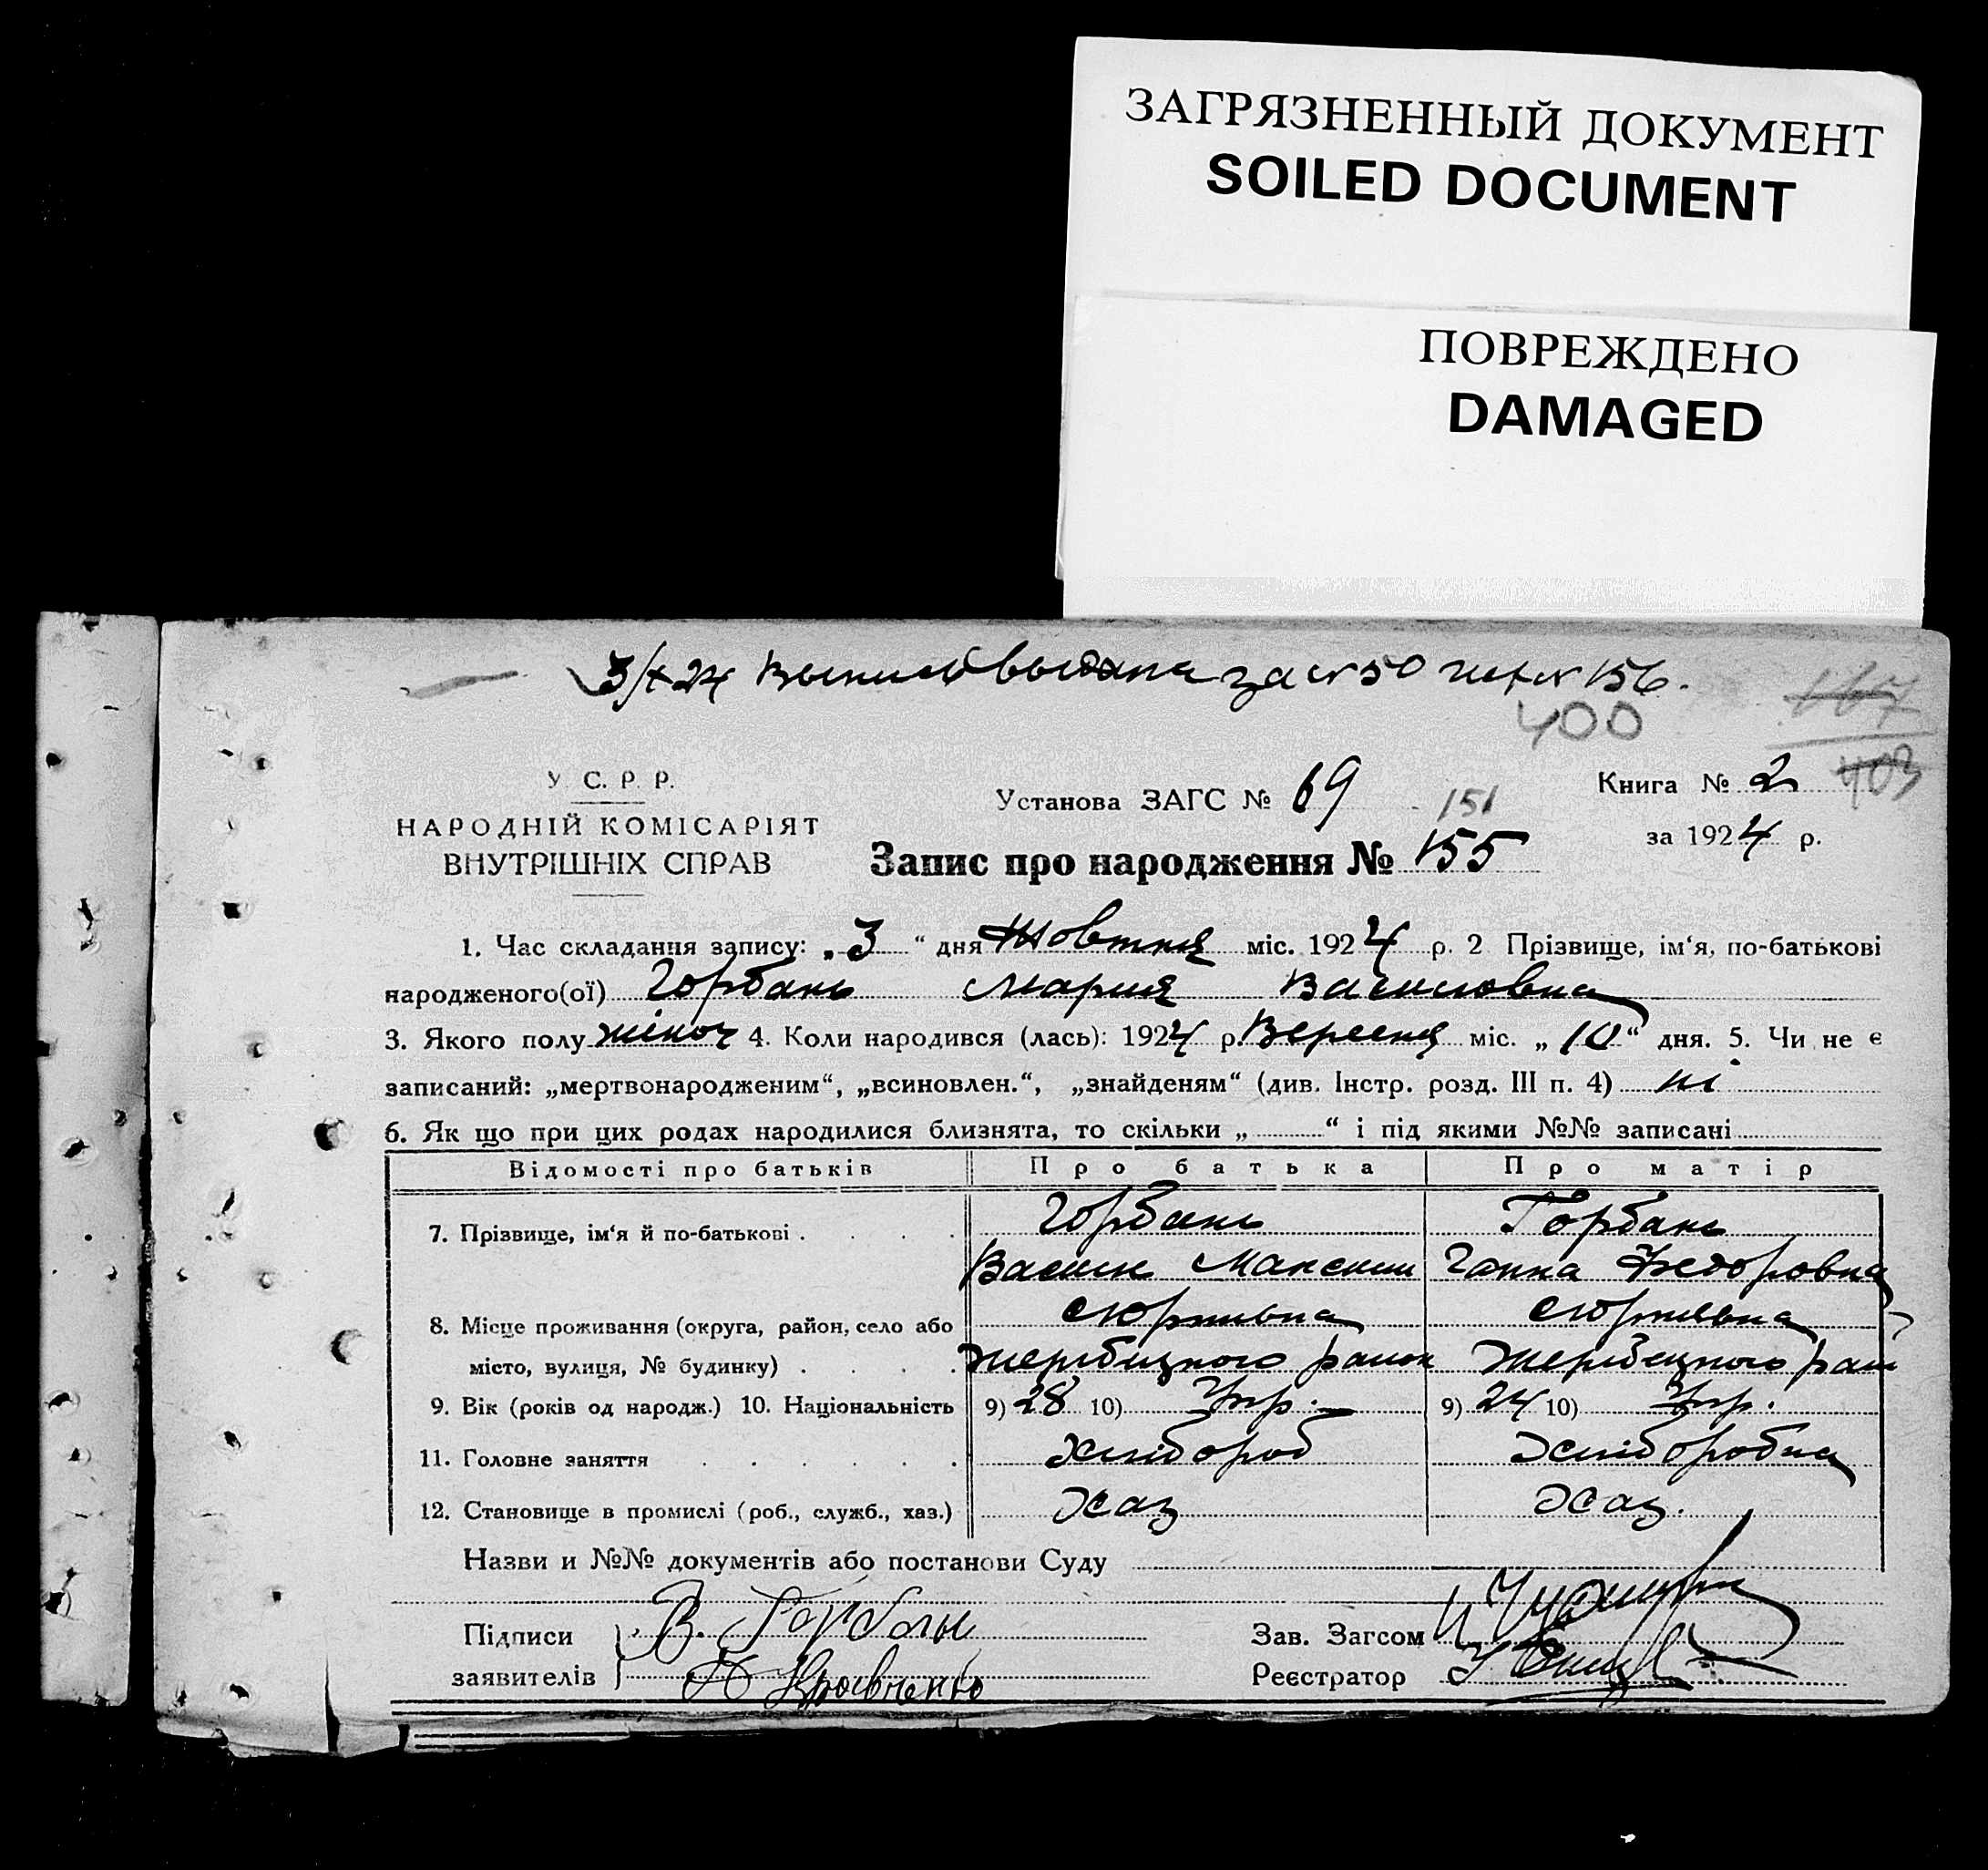 ЗАГРЯЗНЕННЫЙ ДОКУМЕНТ
SOILED DOCUMENT
ПОВРЕЖДЕНО
DAMAGED
3/X 24 выдана за № 50 156.
400
167
403
У. С. Р. Р.
НАРОДНІЙ КОМІСАРІЯТ
ВНУТРІШНІХ СПРАВ
Установа ЗАГС № 69
151
Запис про народження № 155
Книга № 2
за 1924 р.
1. Час складання запису: „ 3 “ дня Жовтня міс. 1924 р. 2 Прізвище, ім‘я, по-батькові
народженого(ої) Горбань Мария Василовна
3. Якого полу жіноч 4. Коли народився (лась): 1924 р. Вересня міс. „ 10 “ дня. 5. Чи не є
записаний: „мертвонародженим“, „всиновлен.“, „знайденям“ (див. Інстр. розд. III п. 4) ні
6. Як що при цих родах народилися близнята, то скільки „ “ і під якими №№ записані
Відомості про батьків Про батька Про матір
7. Прізвище, ім‘я й по-батькові . . . . Горбань Горбань
Василь Максим Ганна Федоровна
8. Місце проживання (округа, район, село або Юрківка Юрківка
місто, вулиця, № будинку) . . . . Жеребецкого район Жеребецкого раи
9. Вік (років од народж.) 10. Національність 9) 28 10) Укр. 9) 24 10) Укр.
11. Головне заняття . . . . . . Хлібороб Хліборобка
12. Становище в промислі (роб., служб., хаз.) Хаз Хаз.
Назви и №№ документів або постанови Суду
Підписи В. Горбань Зав. Загсом
заявителів Кравченко Реєстратор